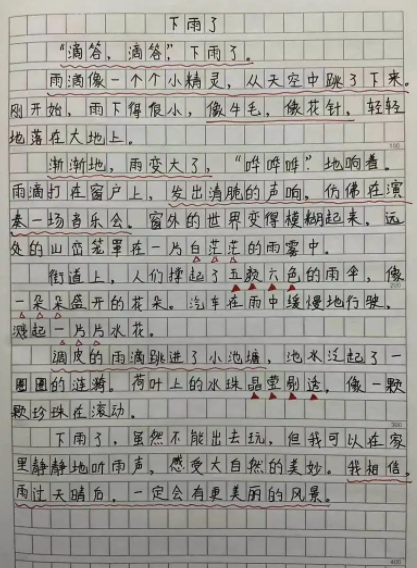 下雨了
“滴答，滴答”，下雨了。
雨滴像一个个小精灵，从天空中跳了下来。
刚开始，雨下得很小，像牛毛，像花针，轻轻
地落在大地上。
100
渐渐地，雨变大了，“哗哗哗”地响着。
雨滴打在窗户上，发出清脆的声响，仿佛在演
奏一场音乐会。窗外的世界变得模糊起来，远
处的山峦笼罩在一片白茫茫的雨雾中。
街道上，人们撑起了五颜六色的雨伞，像
200
一朵朵盛开的花朵。汽车在雨中缓慢地行驶，
溅起一片片水花。
调皮的雨滴跳进了小池塘，池水泛起了一
圈圈的涟漪。荷叶上的水珠晶莹剔透，像一颗
颗珍珠在滚动。
300
下雨了，虽然不能出去玩，但我可以在家
里静静地听雨声，感受大自然的美妙。我相信，
雨过天晴后，一定会有更美丽的风景。
400